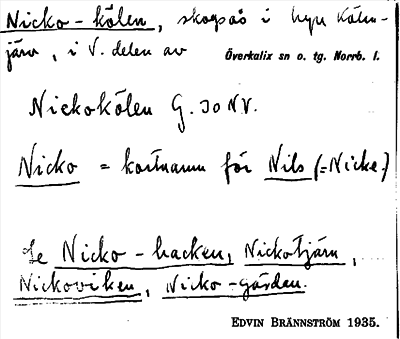 Nicko-kölen, skogsås i byn Kölm-
järv, i V. delen av
Överkalix sn o. tg. Norrb. l.
Nickokölen G. 30 NV.
Nicko = kortnamn för Nils (=Nicke.)
Se Nicko-backen, Nickotjärn,
Nickoviken, Nicko-gården.
EDVIN BRÄNNSTRÖM 1935.